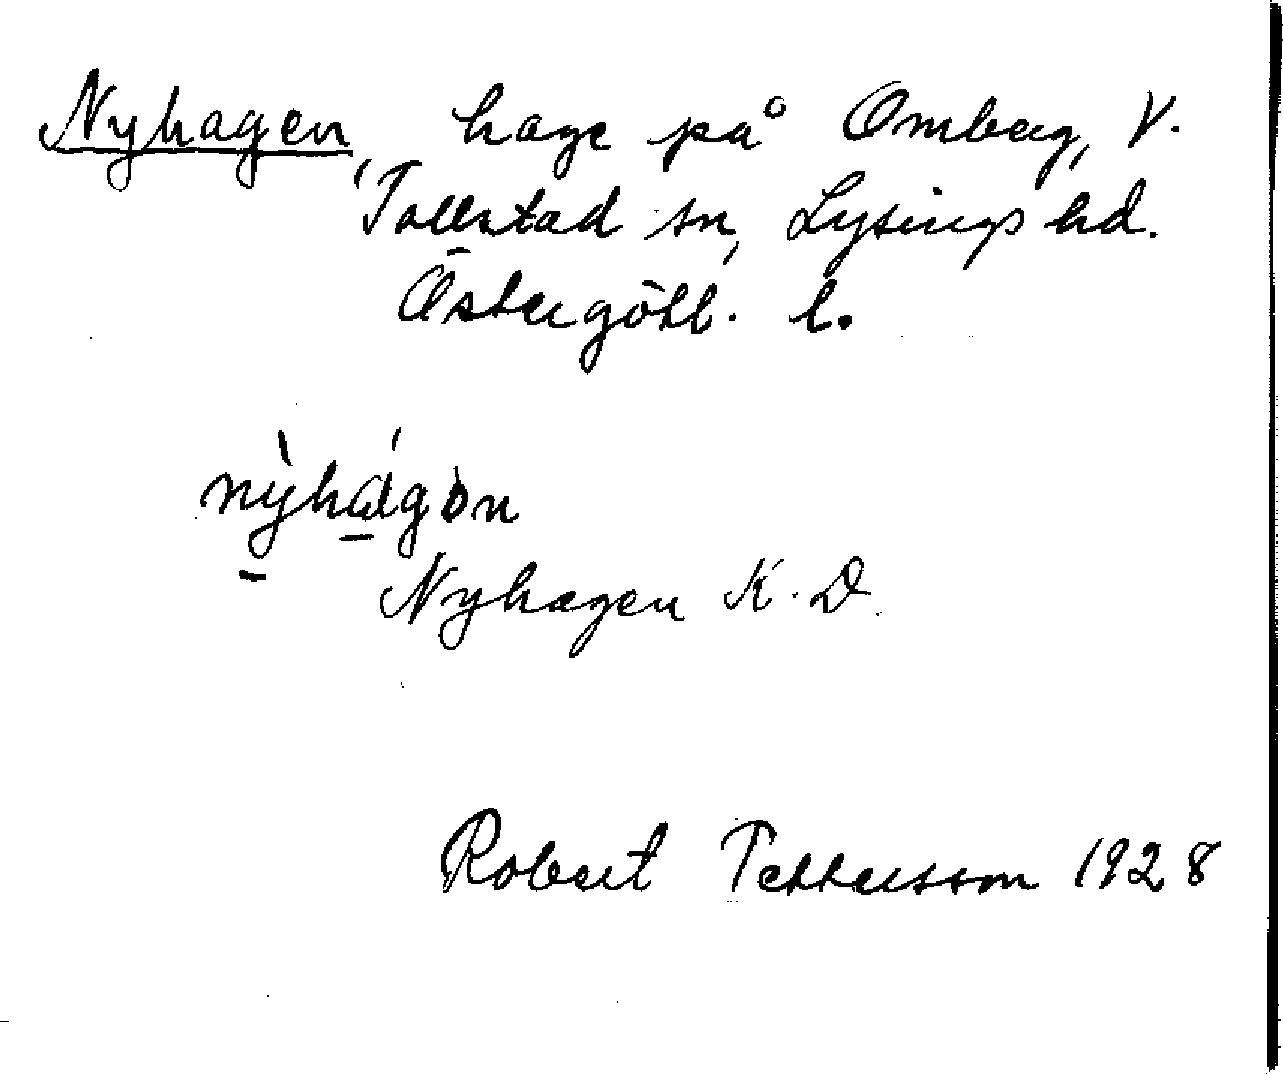 Nyhagen, hage på Omberg, V.
Tollstad sn, Lysings hd.
Östergötl. l.
nỳhágòn
Nyhagen K. D.
Robert Pettersson 1928